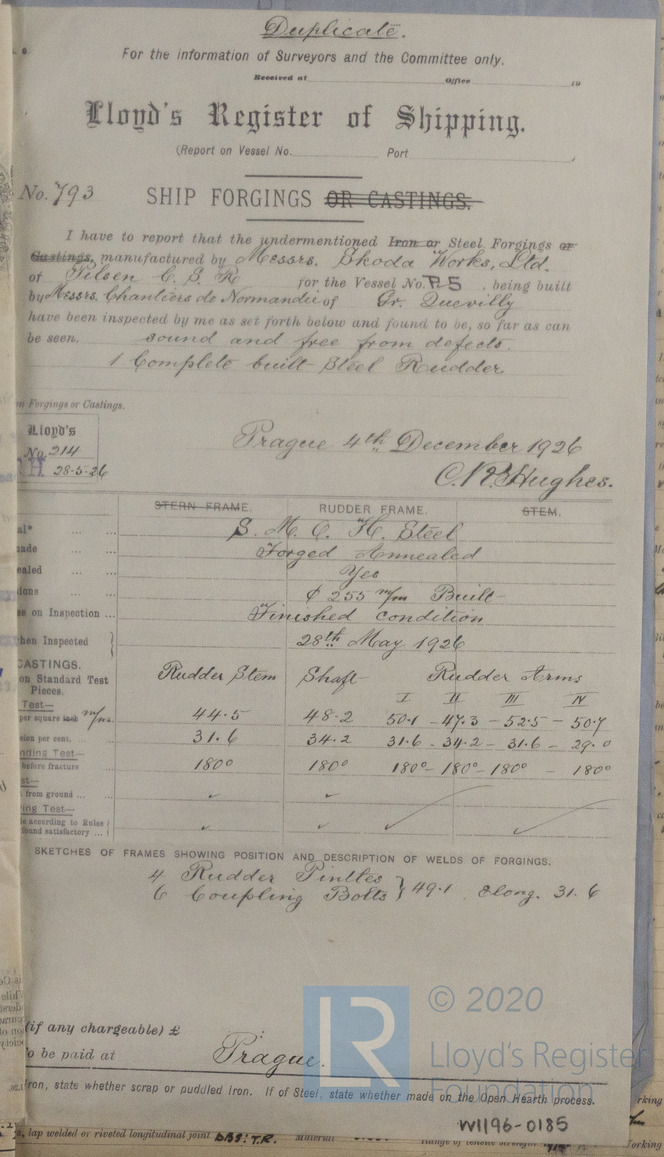 Duplicate.
For the information of Surveyors and the Committee only.
Received at Office 19
Lloyd's Register of Shipping.
(Report on Vessel No. Port
No. 793 SHIP FORGINGS OR CASTINGS.
I have to report that the undermentioned Iron or Steel Forgings or
Castings, manufactured by Messrs. Skoda Works, Ltd.
of Pilsen C. S. R for the Vessel No. P.5 , being built
by Messrs. Chantiers de Normandie of Gr. Quevilly
have been inspected by me as set forth below and found to be, so far as can
be seen. sound and free from defects.
1 Complete built Steel Rudder
Forgings or Castings.
Lloyd's
No. 214
28-5-26
Prague 4th December 1926
C. R. Hughes.
STERN FRAME. RUDDER FRAME. STEM.
S. M. O. H. Steel
Forged Annealed
Yes
¢ 255 m/m Built
on Inspection ... Finished condition
Inspected 28th May 1926
CASTINGS.
on Standard Test Pieces. Rudder Stem Shaft Rudder Arms
I II III IV
Test—
per square inch m/m. 44.5 48.2 50.1 - 47.3 - 52.5 - 50.7
per cent. 31.6 34.2 31.6 - 34.2 - 31.6 - 29.0
Test—
before fracture 180° 180° 180° - 180° - 180° - 180°
from ground ... ✓ ✓
Test—
according to Rules
found satisfactory ... ✓ ✓ ✓ ✓
SKETCHES OF FRAMES SHOWING POSITION AND DESCRIPTION OF WELDS OF FORGINGS.
4 Rudder Pintles
6 Coupling Bolts } 49.1 Elong. 31.6
(if any chargeable) £
to be paid at Prague.
Iron, state whether scrap or puddled Iron. If of Steel, state whether made on the Open Hearth process.
© 2020
LR
Lloyd's Register
Foundation
W1196-0185
lap welded or riveted longitudinal joint DBS: T.R. Material Range of tensile strength Working